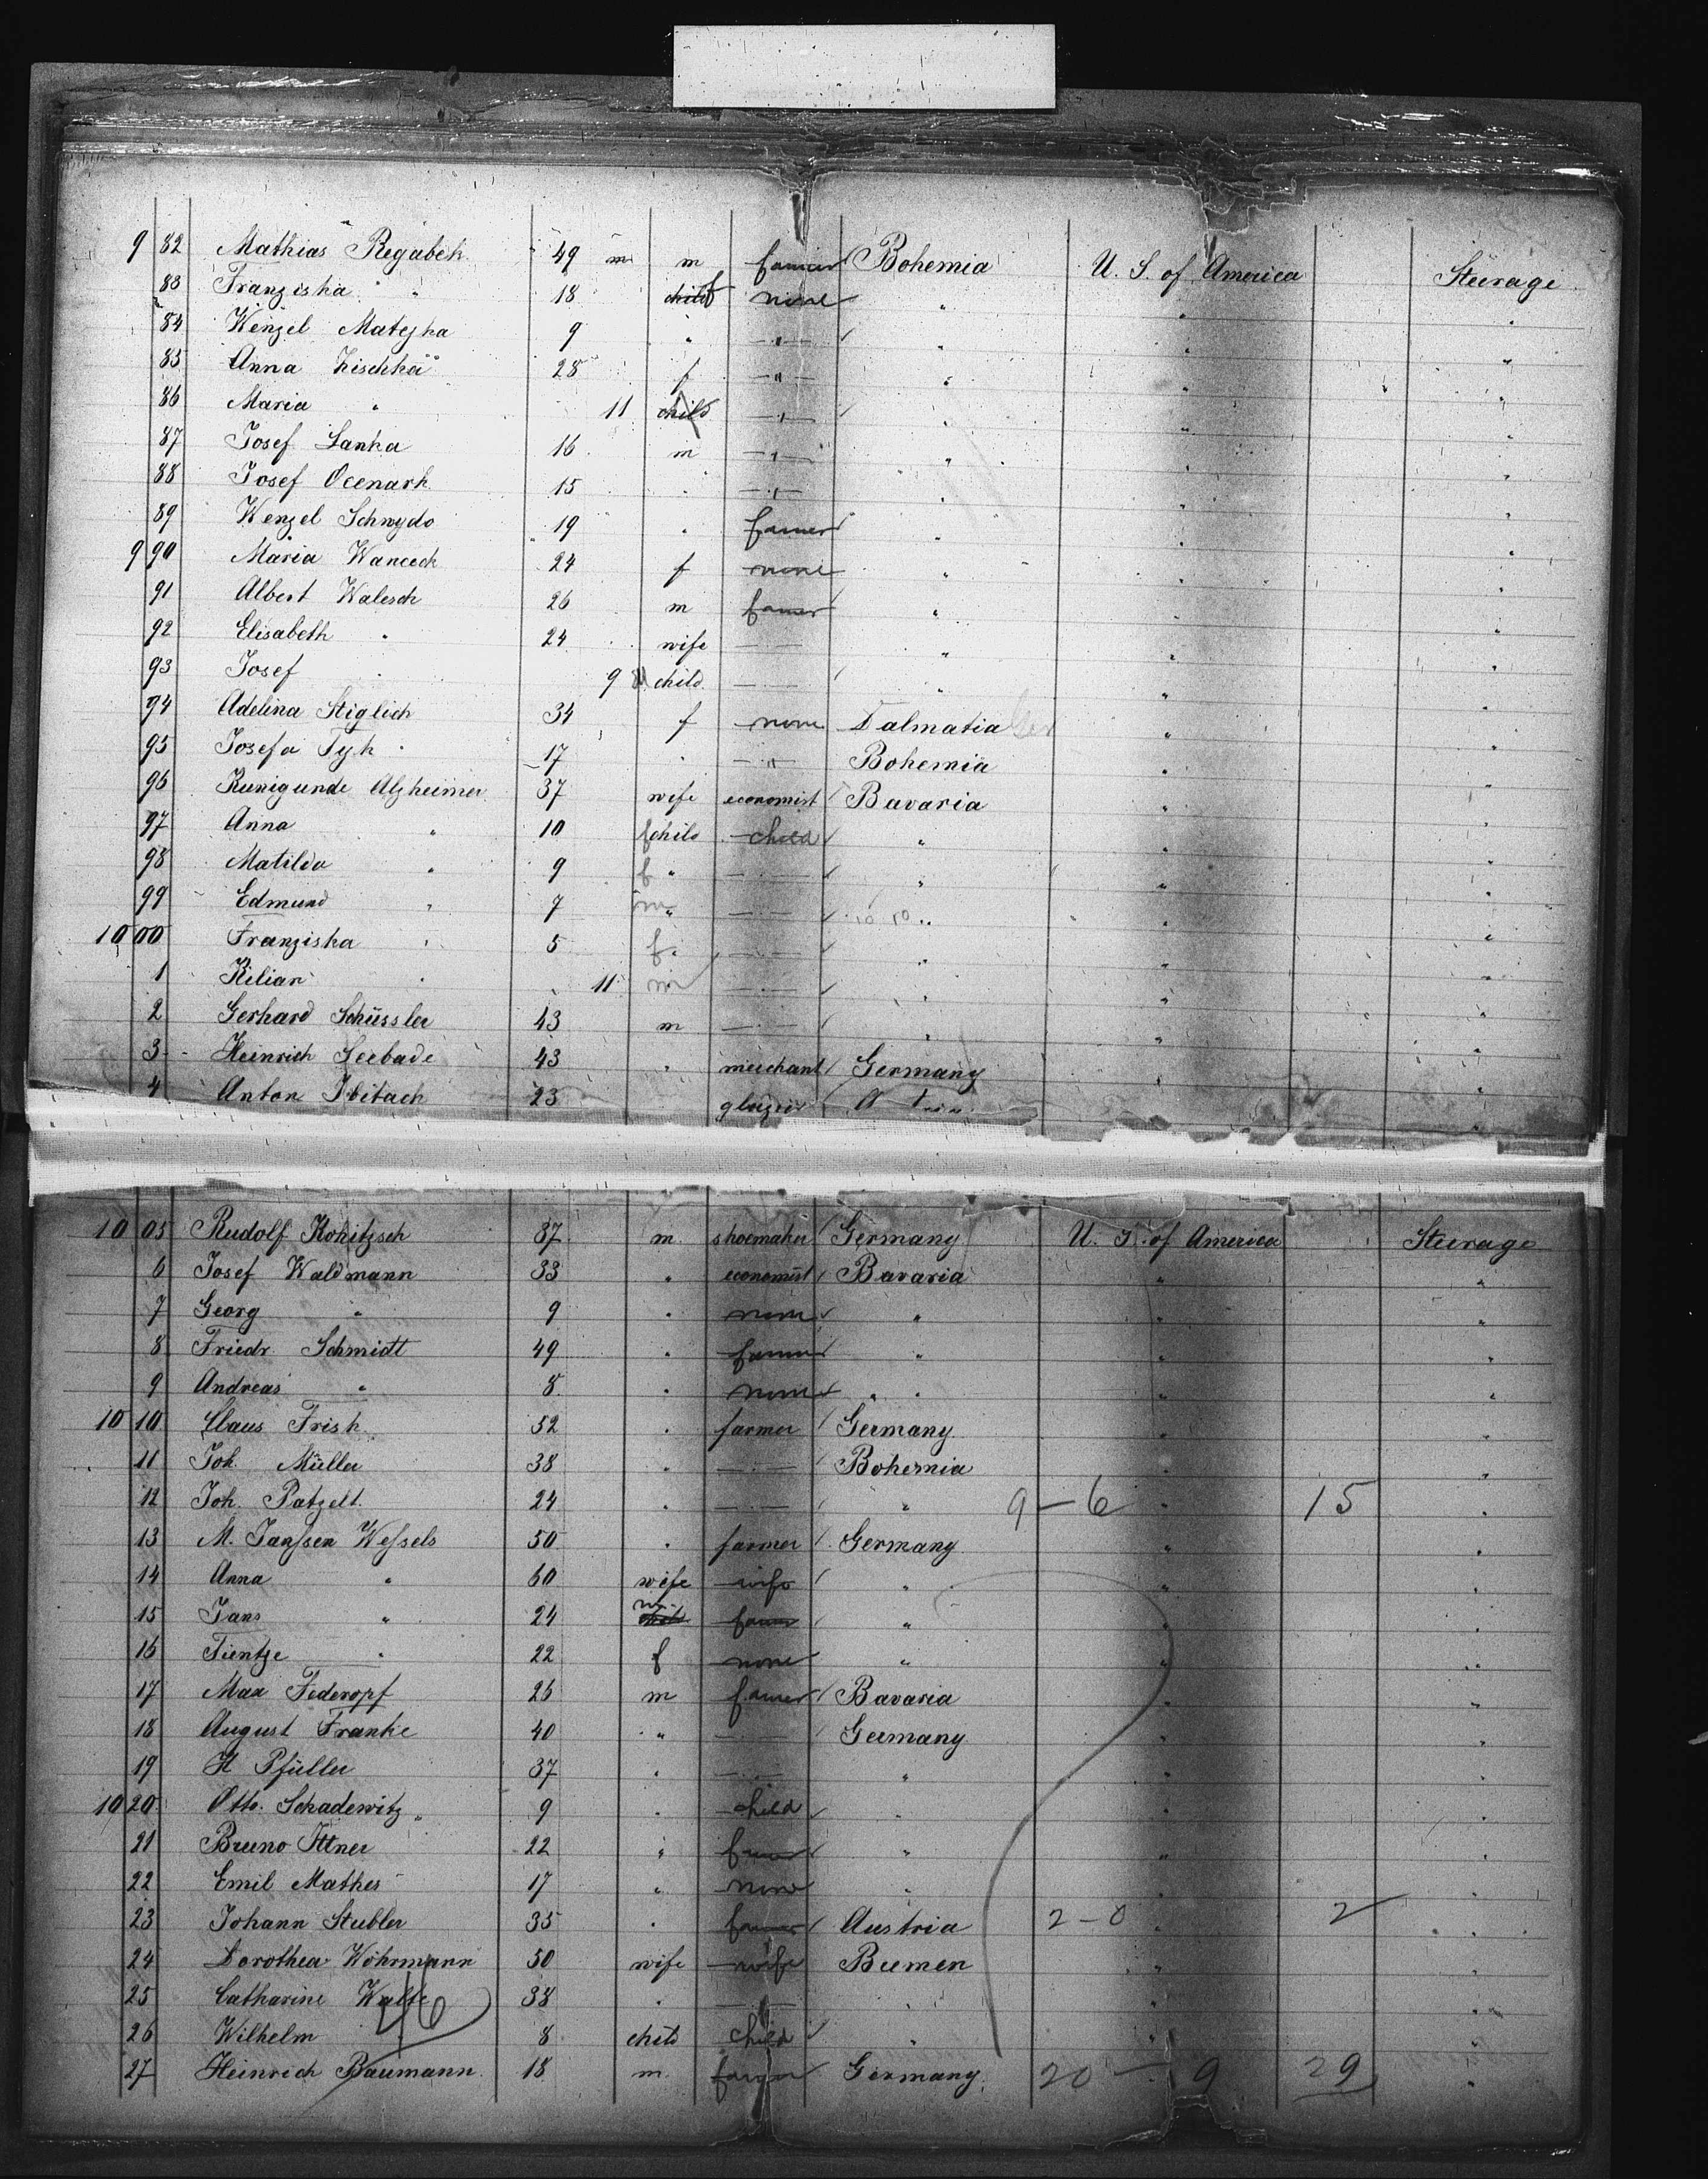 9 82 Mathias Regabek 49 m m farmer Bohemia U. S. of America Steerage
83 Franziska " 18 child f none " " "
84 Wenzel Matejka 9 " " " " "
85 Anna Zischka 28 f " " " "
86 Maria " 11 child " " " "
87 Josef Lanka 16 m " " " "
88 Josef Ocenark 15 " " " " "
89 Wenzel Schnydo 19 " farmer " " "
9 90 Maria Wanceck 24 f none " " "
91 Albert Walesch 26 m farmer " " "
92 Elisabeth " 24 wife — " " "
93 Josef " 9 child — " " "
94 Adelina Stiglich 34 f none Dalmatia " "
95 Josefa Tyk 17 " " Bohemia " "
96 Kunigunde Alzheimer 37 wife economist Bavaria " "
97 Anna " 10 f child child " " "
98 Matilda " 9 f " — " " "
99 Edmund " 7 m " — " " "
10 00 Franziska " 5 f " — " " "
1 Kilian " 11 m — " " "
2 Gerhard Schüssler 43 m — " " "
3 Heinrich Seebade 43 " merchant Germany " "
4 Anton 23 glazier "
10 05 Rudolf Kokitzsch 37 m shoemaker Germany U. S. of America Steerage
6 Josef Waldmann 33 " economist Bavaria " "
7 Georg " 9 " none " " "
8 Friedr. Schmidt 49 " farmer " " "
9 Andreas " 8 " none " " "
10 10 Claus Frisk 52 " farmer Germany " "
11 Joh. Müller 38 " — " — Bohemia " "
12 Joh. Patzelt 24 " — " — " 9-6 " 15 "
13 M. Janssen Wessels 50 " farmer Germany " "
14 Anna " 60 wife wife " " "
15 Jans " 24 m child farmer " " "
16 Tientze " 22 f none " " "
17 Max Federopf 26 m farmer Bavaria " "
18 August Franke 40 " — " — Germany " "
19 H Pfüller 37 " — " — " " "
10 20 Otto. Schadewitz 9 " child " " "
21 Bruno Ittner 22 " farmer " " "
22 Emil Mathes 17 " none " " "
23 Johann Stubler 35 " farmer Austria 2-0 " 2 "
24 Dorothea Wöhrmann 50 wife wife Bremen " "
25 Catharine Walte 38 " — " — " " "
46
26 Wilhelm " 8 child child " " "
27 Heinrich Baumann 18 m farmer Germany 20 - 9 29 "